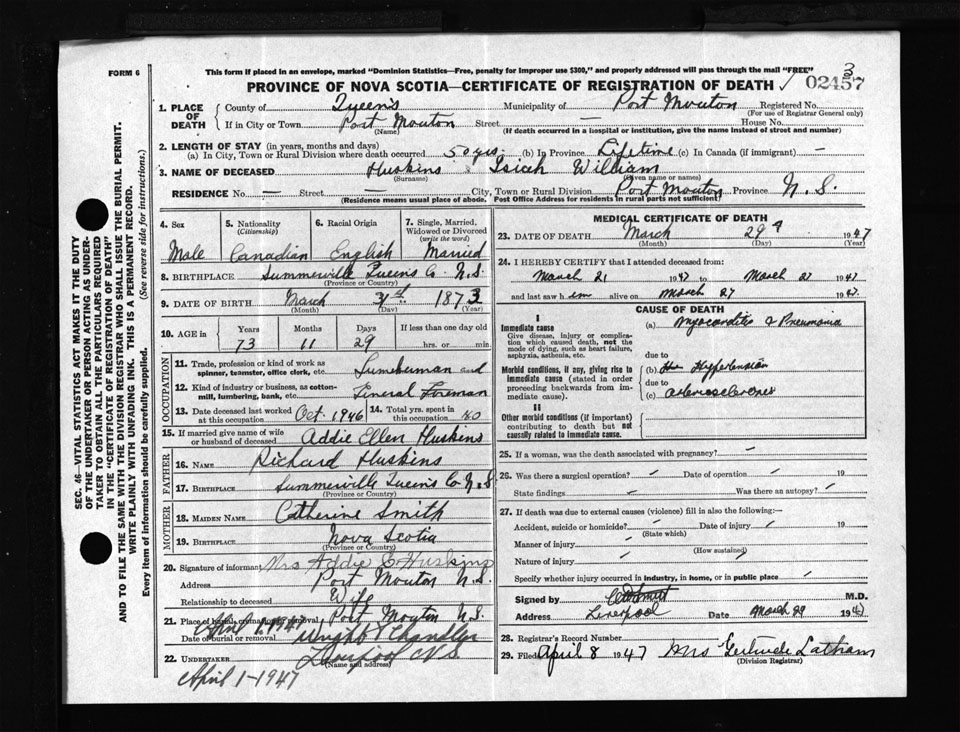 FORM 6
This form if placed in an envelope, marked "Dominion Statistics—Free, penalty for improper use $300," and properly addressed will pass through the mail "FREE"
PROVINCE OF NOVA SCOTIA—CERTIFICATE OF REGISTRATION OF DEATH
02457
1. PLACE OF DEATH
County of Queens Municipality of Port Mouton Registered No.
(For use of Registrar General only)
If in City or Town Port Mouton Street — House No.
(Name) (If death occurred in a hospital or institution, give the name instead of street and number)
2. LENGTH OF STAY (in years, months and days)
(a) In City, Town or Rural Division where death occurred 50 yrs. (b) In Province Lifetime (c) In Canada (if immigrant) —
3. NAME OF DECEASED Huskins Isieh William
(Surname) (Given name or names)
RESIDENCE No. — Street — City, Town or Rural Division Port Mouton Province N.S.
(Residence means usual place of abode. Post Office Address for Residents in rural parts not sufficient)
SEC. 46—VITAL STATISTICS ACT MAKES IT THE DUTY
OF THE UNDERTAKER OR PERSON ACTING AS UNDER-
TAKER TO OBTAIN ALL THE PARTICULARS REQUIRED
IN THE "CERTIFICATE OF REGISTRATION OF DEATH"
AND TO FILE THE SAME WITH THE DIVISION REGISTRAR WHO SHALL ISSUE THE BURIAL PERMIT.
WRITE PLAINLY WITH UNFADING INK. THIS IS A PERMANENT RECORD.
Every item of information should be carefully supplied. (See reverse side for instructions.)
4. Sex
Male
5. Nationality
(Citizenship)
Canadian
6. Racial Origin
English
7. Single, Married, Widowed or Divorced
(write the word)
Married
8. BIRTHPLACE Summerville Queens Co. N.S.
(Province or Country)
9. DATE OF BIRTH March 31st 1873
(Month) (Day) (Year)
10. AGE in
Years Months Days If less than one day old
73 11 29 hrs. or min.
OCCUPATION
11. Trade, profession or kind of work as
spinner, teamster, office clerk, etc. Lumberman and
12. Kind of industry or business, as cotton-
mill, lumbering, bank, etc. General Foreman
13. Date deceased last worked
at this occupation Oct. 1946
14. Total yrs. spent in
this occupation 40
15. If married give name of wife
or husband of deceased Addie Ellen Huskins
FATHER
16. NAME Richard Huskins
17. BIRTHPLACE Summerville Queens Co N.S.
(Province or Country)
MOTHER
18. MAIDEN NAME Catherine Smith
19. BIRTHPLACE Nova Scotia
(Province or Country)
20. Signature of informant Mrs Addie E Huskins
Address Port Mouton N.S.
Relationship to deceased Wife
21. Place of burial, cremation or removal Port Mouton N.S.
Date of burial or removal April 1, 1947
Wright T Chandler
22. UNDERTAKER Liverpool N.S.
(Name and address)
April 1-1947
MEDICAL CERTIFICATE OF DEATH
23. DATE OF DEATH March 29 1947
(Month) (Day) (Year)
24. I HEREBY CERTIFY that I attended deceased from:
March 21 1947 to March 27 1947
and last saw him alive on March 27 1947
CAUSE OF DEATH
I
Immediate cause
Give disease, injury or complication which caused death, not the mode of dying, such as heart failure, asphyxia, asthenia, etc.
(a) Myocarditis & Pneumonia
due to
Morbid conditions, if any, giving rise to immediate cause (stated in order proceeding backwards from immediate cause).
(b) Hypertension
due to
(c) arteriosclerosis
II
Other morbid conditions (if important) contributing to death but not causally related to immediate cause.
25. If a woman, was the death associated with pregnancy?
26. Was there a surgical operation? Date of operation 19
State findings Was there an autopsy?
27. If death was due to external causes (violence) fill in also the following:—
Accident, suicide or homicide? Date of injury 19
(State which)
Manner of injury
(How sustained)
Nature of injury
Specify whether injury occurred in industry, in home, or in public place
Signed by M.D.
Address Liverpool Date March 29 194
28. Registrar's Record Number
29. Filed April 8 1947 Mrs Gertrude Latham
(Division Registrar)